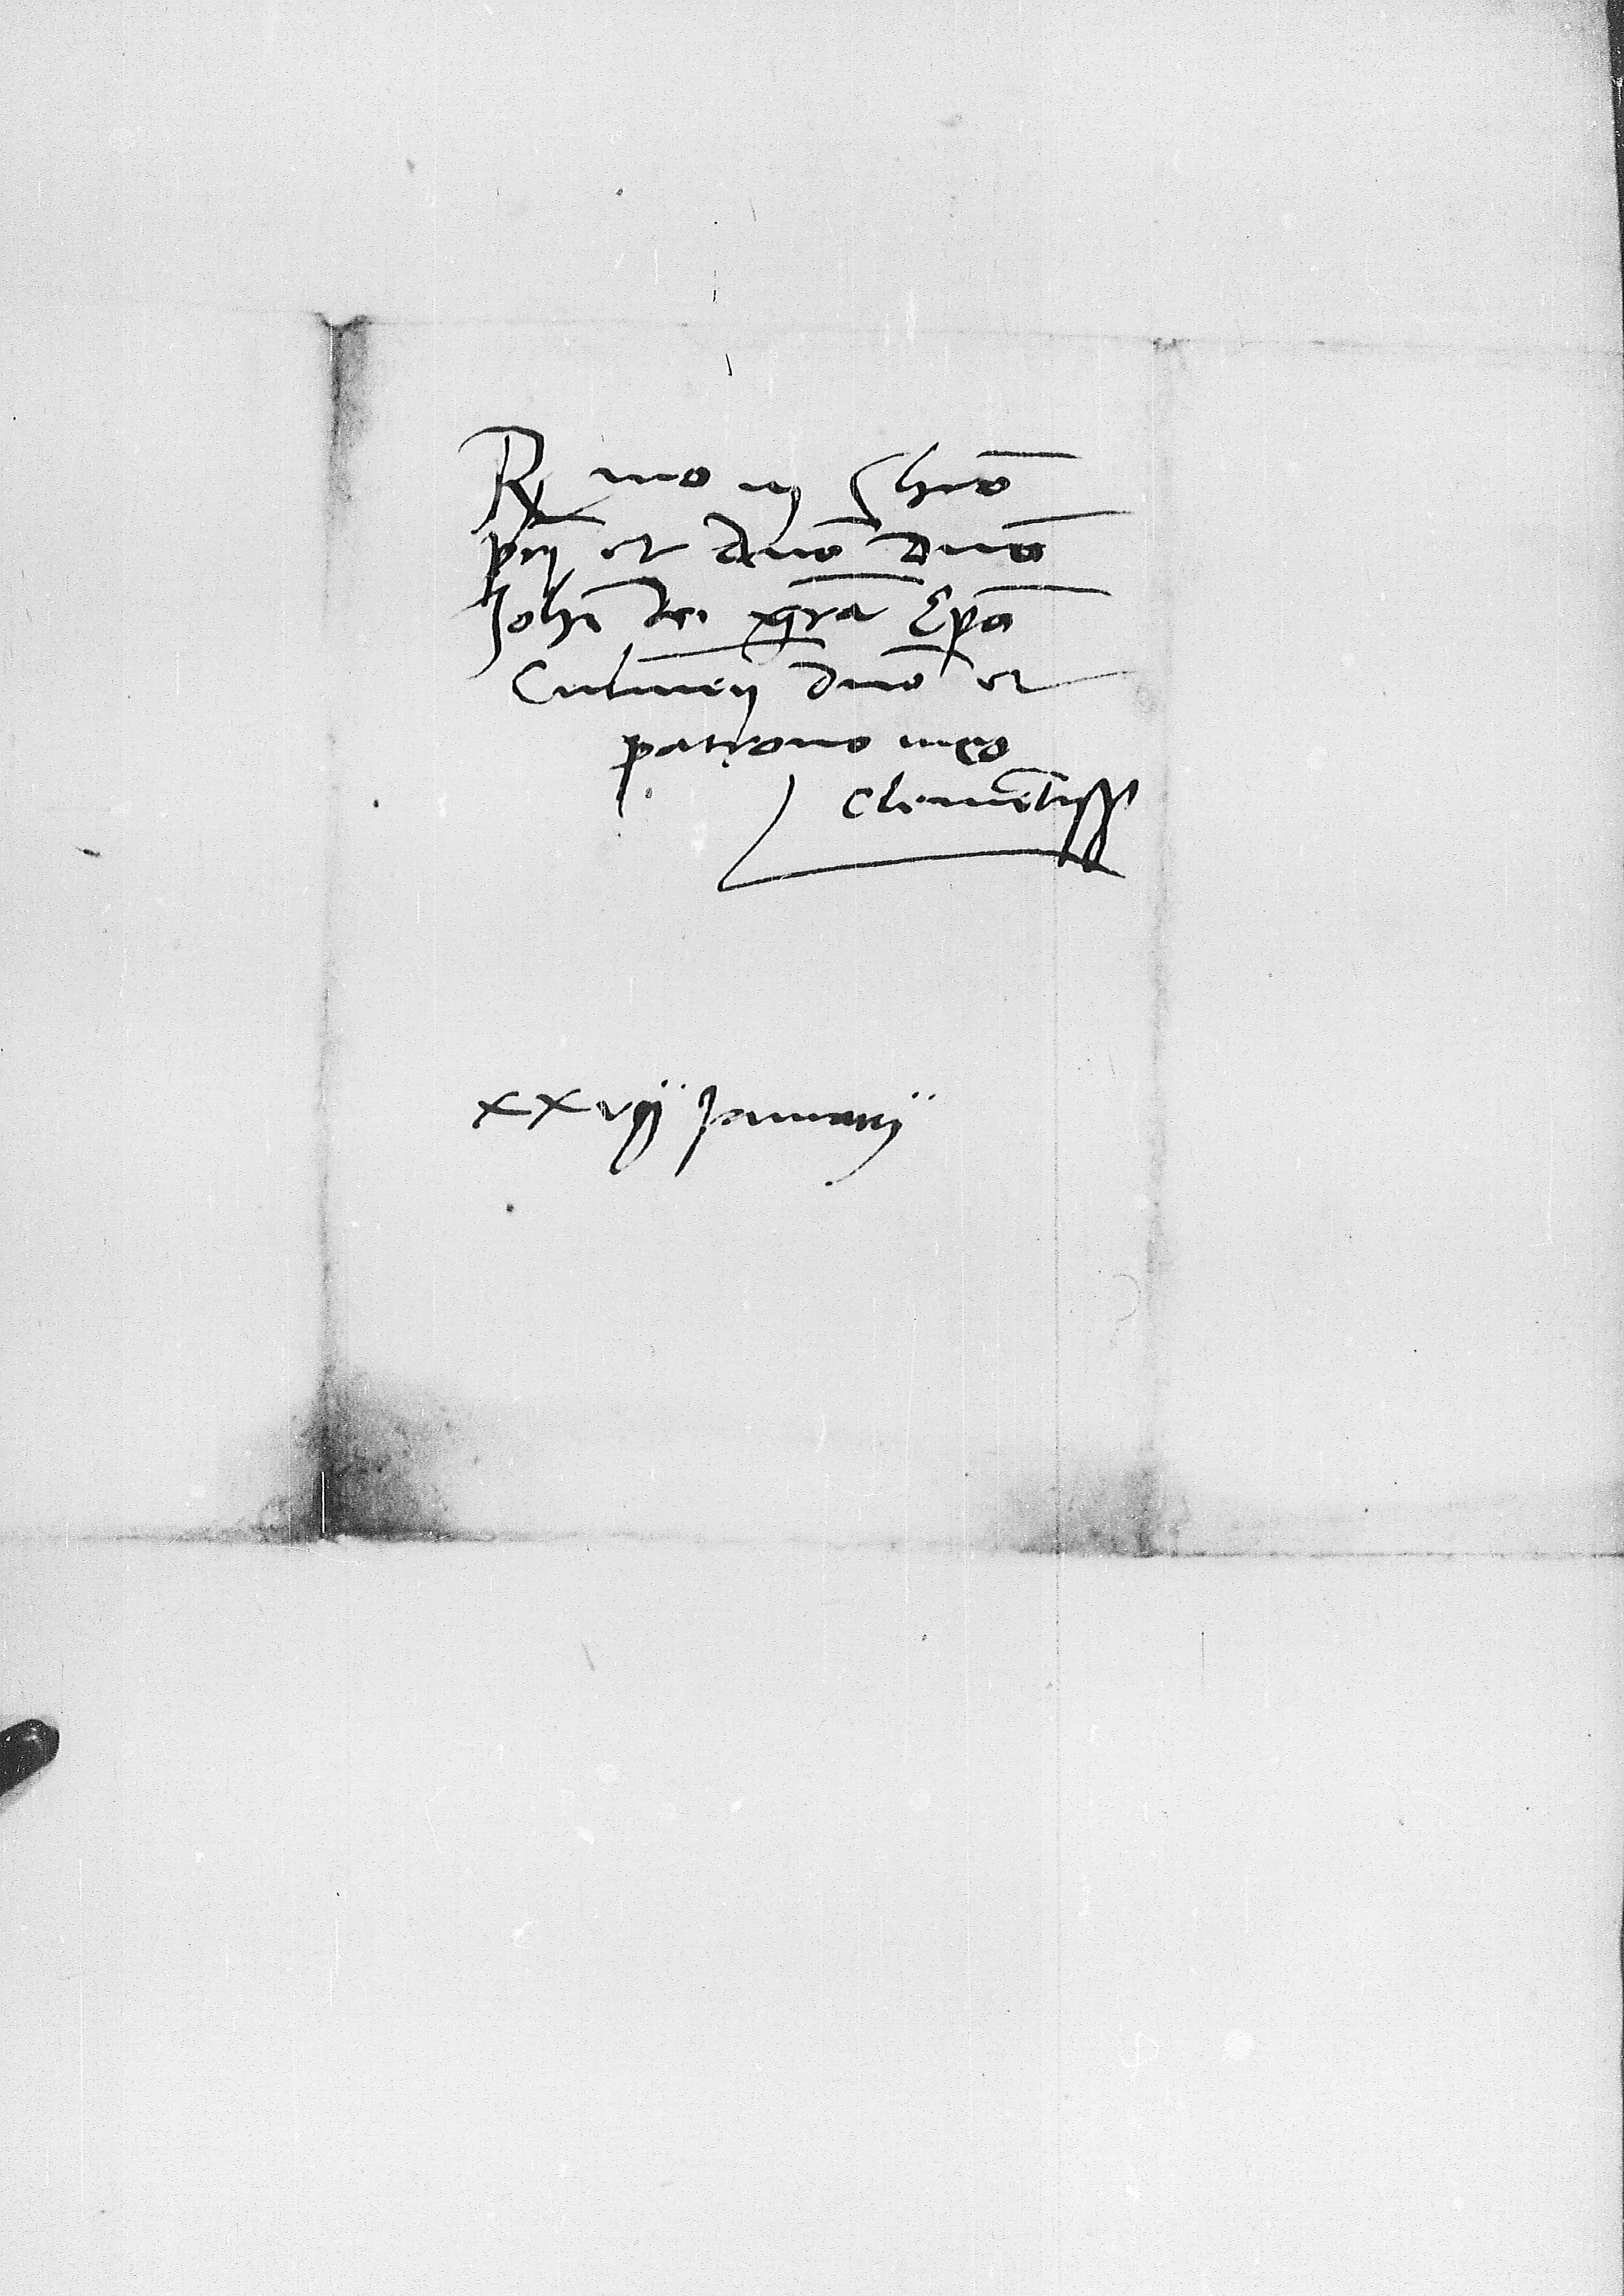 R mo in Chrō
pr̄i et dn̄o dn̄o
Joh̄i dei gr̄a Ep̄o
Culmeñ dn̄o et
patrono meo
clemētiss°
xxvij Januarij